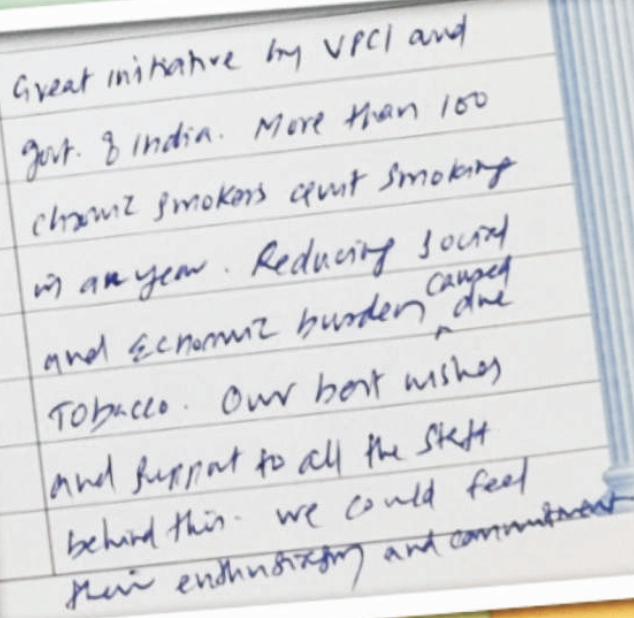 Great initiative by VPCI and
govt. of India. More than 100
chronic smokers quit smoking
in an year. Reducing social
and Economic burden caused due
Tobacco. Our best wishes
and support to all the staff
behind this. we could feel
their enthusiasm and commitment